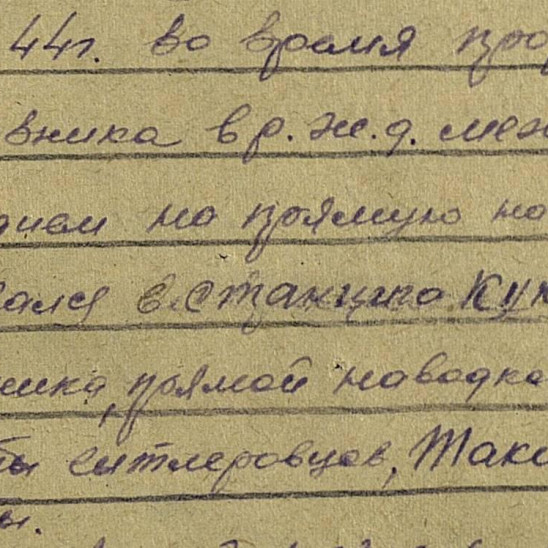 44г. во время про
вника в р. ж. д. меж
дием на прямую на
вался в станцию Кук
ника, прямой наводко
ты гитлеровцев, Такж
ы.